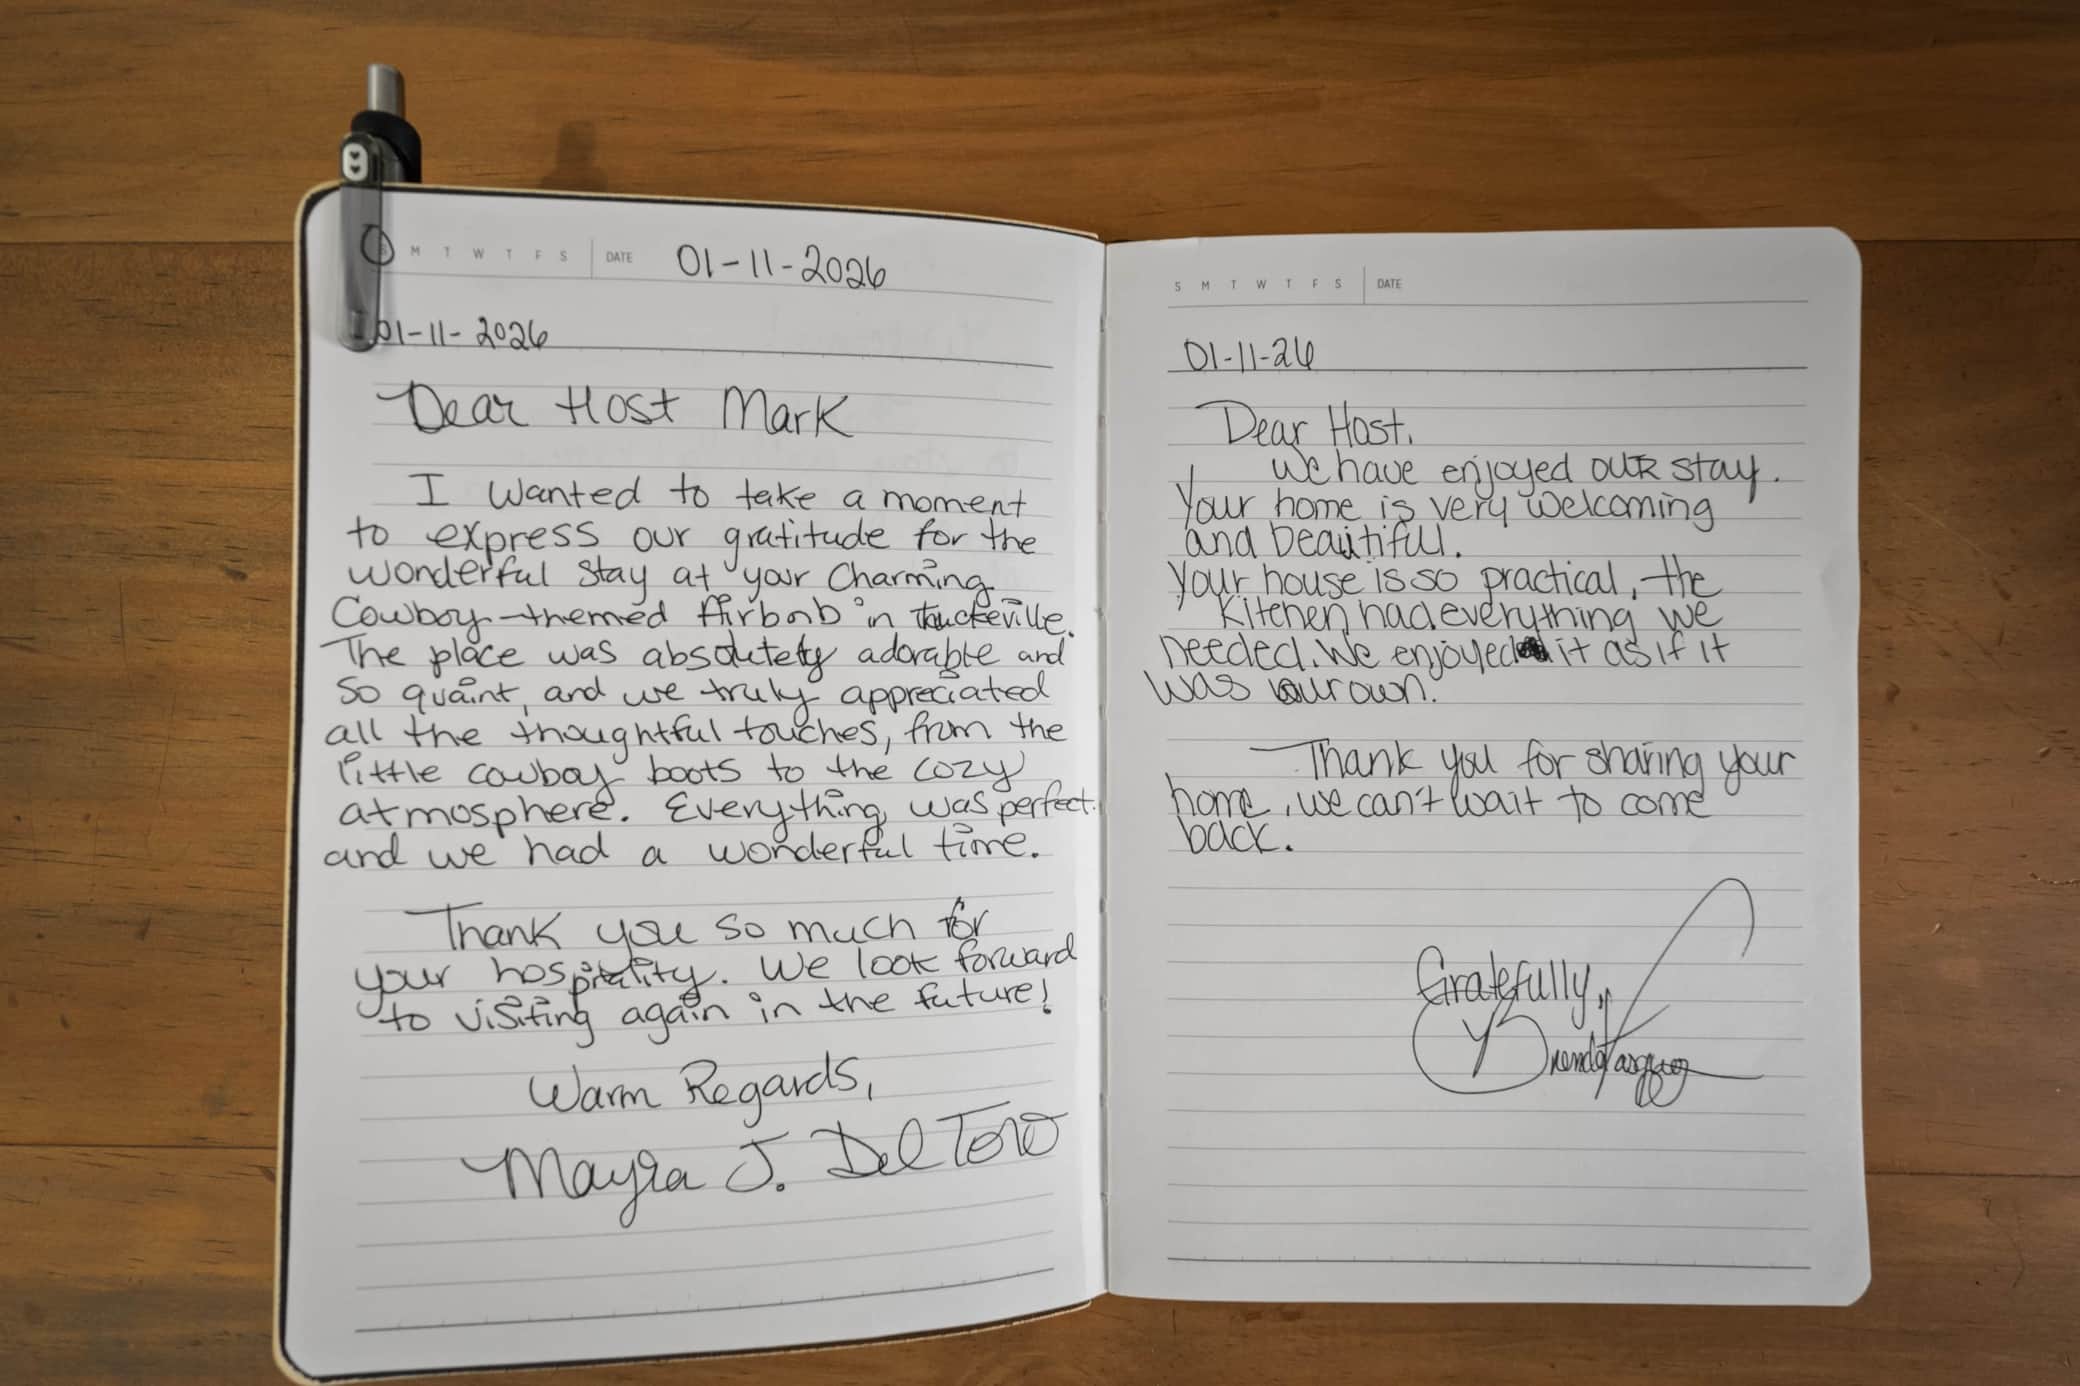 S M T W T F S DATE 01-11-2026
01-11-2026
Dear Host Mark
I wanted to take a moment
to express our gratitude for the
wonderful stay at your charming
Cowboy-themed Airbnb in Thuckeville.
The place was absolutely adorable and
so quaint, and we truly appreciated
all the thoughtful touches, from the
little cowboy boots to the cozy
atmosphere. Everything was perfect.
and we had a wonderful time.
Thank you so much for
your hospitality. We look forward
to visiting again in the future!
Warm Regards,
Mayra J. Del Toro
S M T W T F S DATE
01-11-26
Dear Host.
We have enjoyed our stay.
Your home is very welcoming
and beautiful.
Your house is so practical, the
kitchen had everything we
needed. We enjoyed it as if it
was our own.
Thank you for sharing your
home, we can't wait to come
back.
Gratefully,
Brenda Vasquez